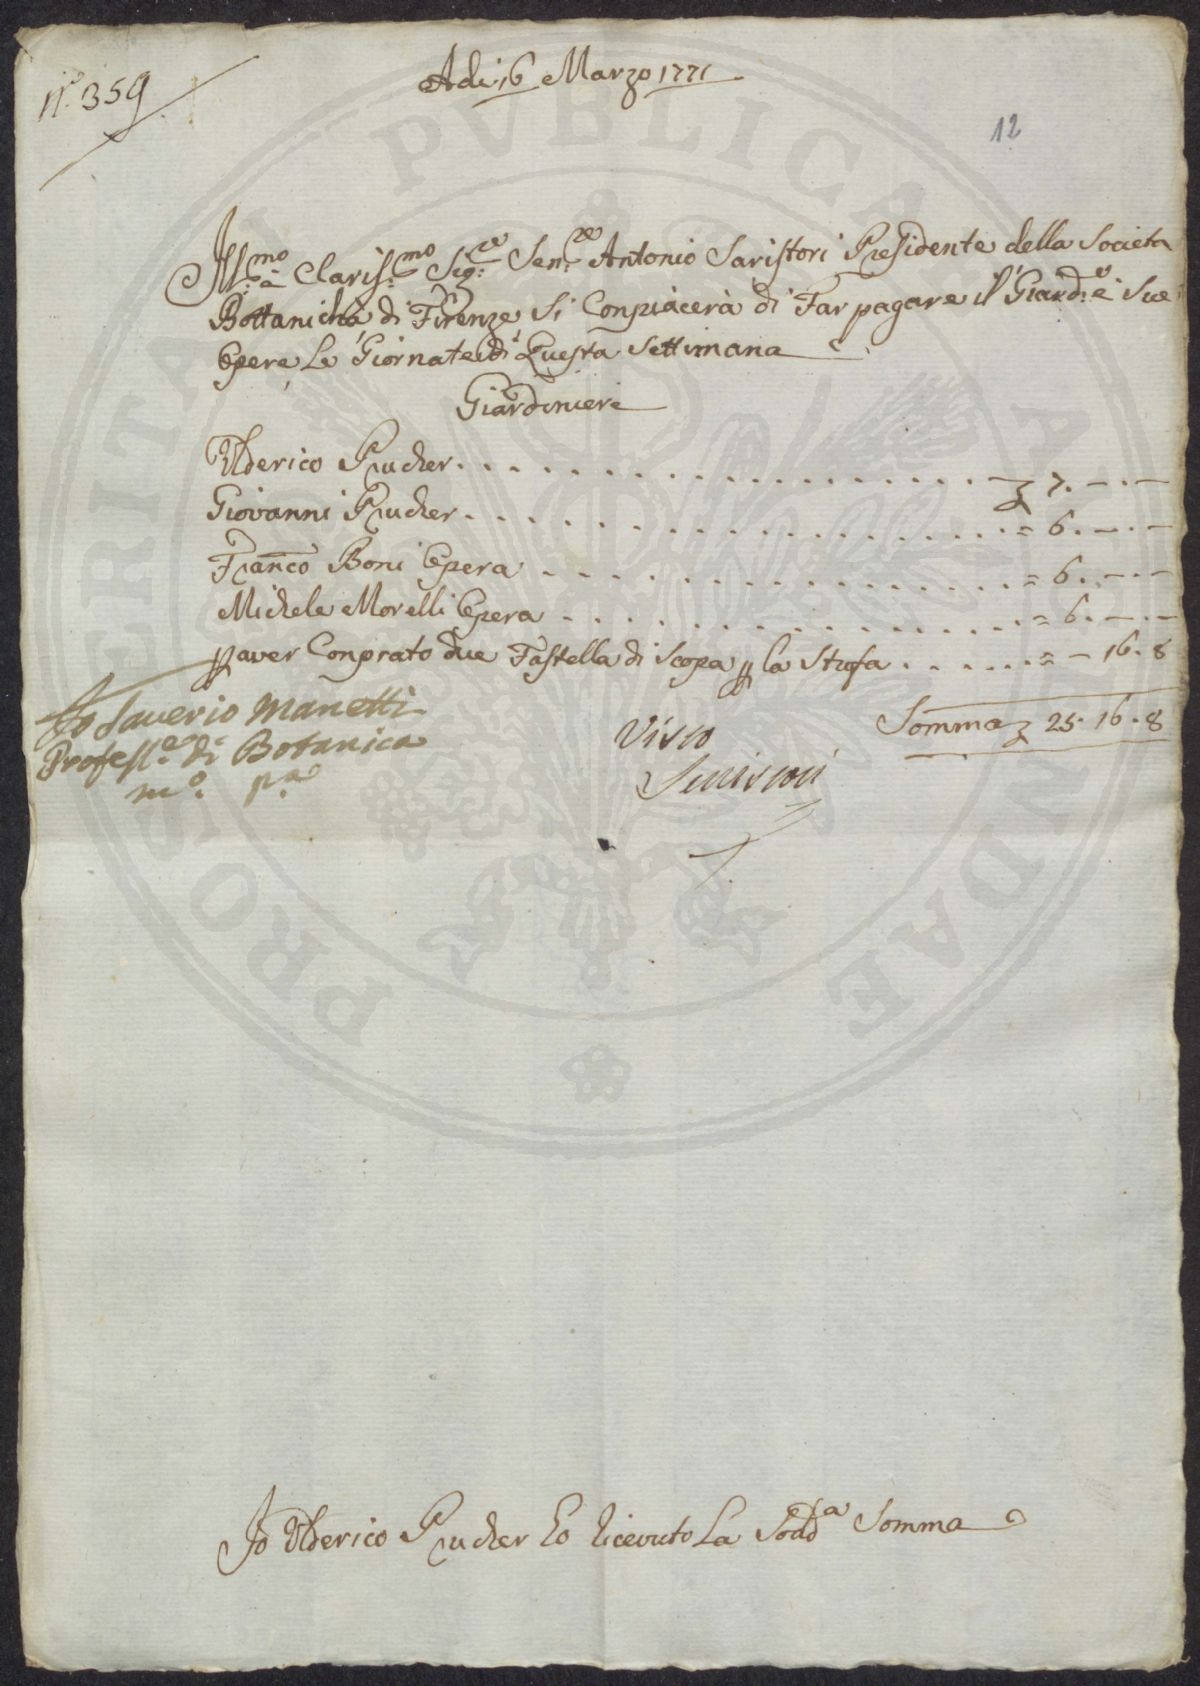 N.° 359
Adi 16 Marzo 1771
12
Ill:mo è Claris:mo Sig:re Sen:re Antonio Saristori Presidente della Societa
Bottanicha di Firenze, si Conpiacerà di Far pagare il Giard:re è Sue
Opere Le Giornate di Questa Settimana
Giardiniere
Ulderico Prucher . . . . . . . . . . . . . . . . . . £ 7. — . —
Giovanni Prucher . . . . . . . . . . . . . . . . . = 6. — . —
Franco Boni Opera . . . . . . . . . . . . . . . = 6. — . —
Michele Morelli Opera . . . . . . . . . . . . . . = 6. — . —
p aver Conprato due Fastella di Scopa p la Stufa . . . . . . = — 16. 8
Somma £ 25. 16. 8
Io Saverio Manetti
Profess.e di Botanica
m.o p.a
Visto
Io Ulderico Prucher ho ricevuto La Sodd.a Somma
PROSPERITATI PVBLICAE AVGENDAE